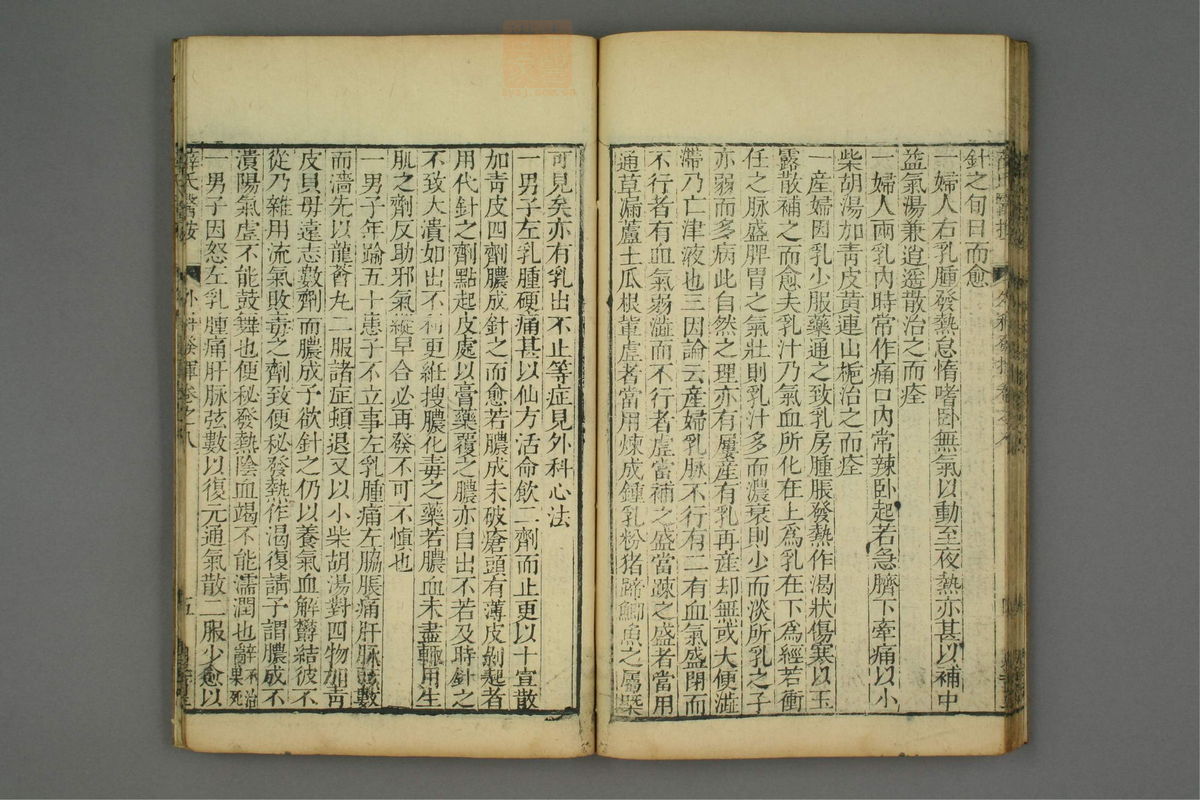 針之旬日而愈
一婦人右乳腫發熱怠惰嗜臥無氣以動至夜熱亦甚以補中
益氣湯兼逍遥散治之而痊
一婦人兩乳內時常作痛口內常辣臥起若急臍下牽痛以小
柴胡湯加青皮黃連山梔治之而痊
一産婦因乳少服藥通之致乳房腫脹發熱作渴狀傷寒以玉
露散補之而愈夫乳汁乃氣血所化在上爲乳在下爲經若衝
任之脉盛脾胃之氣壯則乳汁多而濃衰則少而淡所乳之子
亦弱而多病此自然之理亦有屢産有乳再産却無或大便澁
滯乃亡津液也三因論云産婦乳脉不行有二有血氣盛閉而
不行者有血氣弱澁而不行者虛當補之盛當疎之盛者當用
通草漏蘆土瓜根輩虛者當用煉成鍾乳粉猪蹄鯽魚之屬槩
可見矣亦有乳出不止等症見外科心法
一男子左乳腫硬痛甚以仙方活命飲二劑而止更以十宣散
加青皮四劑膿成針之而愈若膿成未破瘡頭有薄皮剝起者
用代針之劑點起皮處以膏藥覆之膿亦自出不若及時針之
不致大潰如出不利更紝搜膿化毒之藥若膿血未盡輙用生
肌之劑反助邪氣縱早合必再發不可不慎也
一男子年踰五十患子不立事左乳腫痛左脇脹痛肝脉弦數
而濇先以龍薈丸二服諸症頓退又以小柴胡湯對四物加青
皮貝毋遠志數劑而膿成予欲針之仍以養氣血解欝結彼不
從乃雜用流氣敗毒之劑致便秘發熱作渴復請予謂膿成不
潰陽氣虛不能鼓舞也便秘發熱陰血竭不能濡潤也辭不治果死
一男子因怒左乳腫痛肝脉弦數以復元通氣散二服少愈以
薛氏醫按
外科發揮卷之八
五